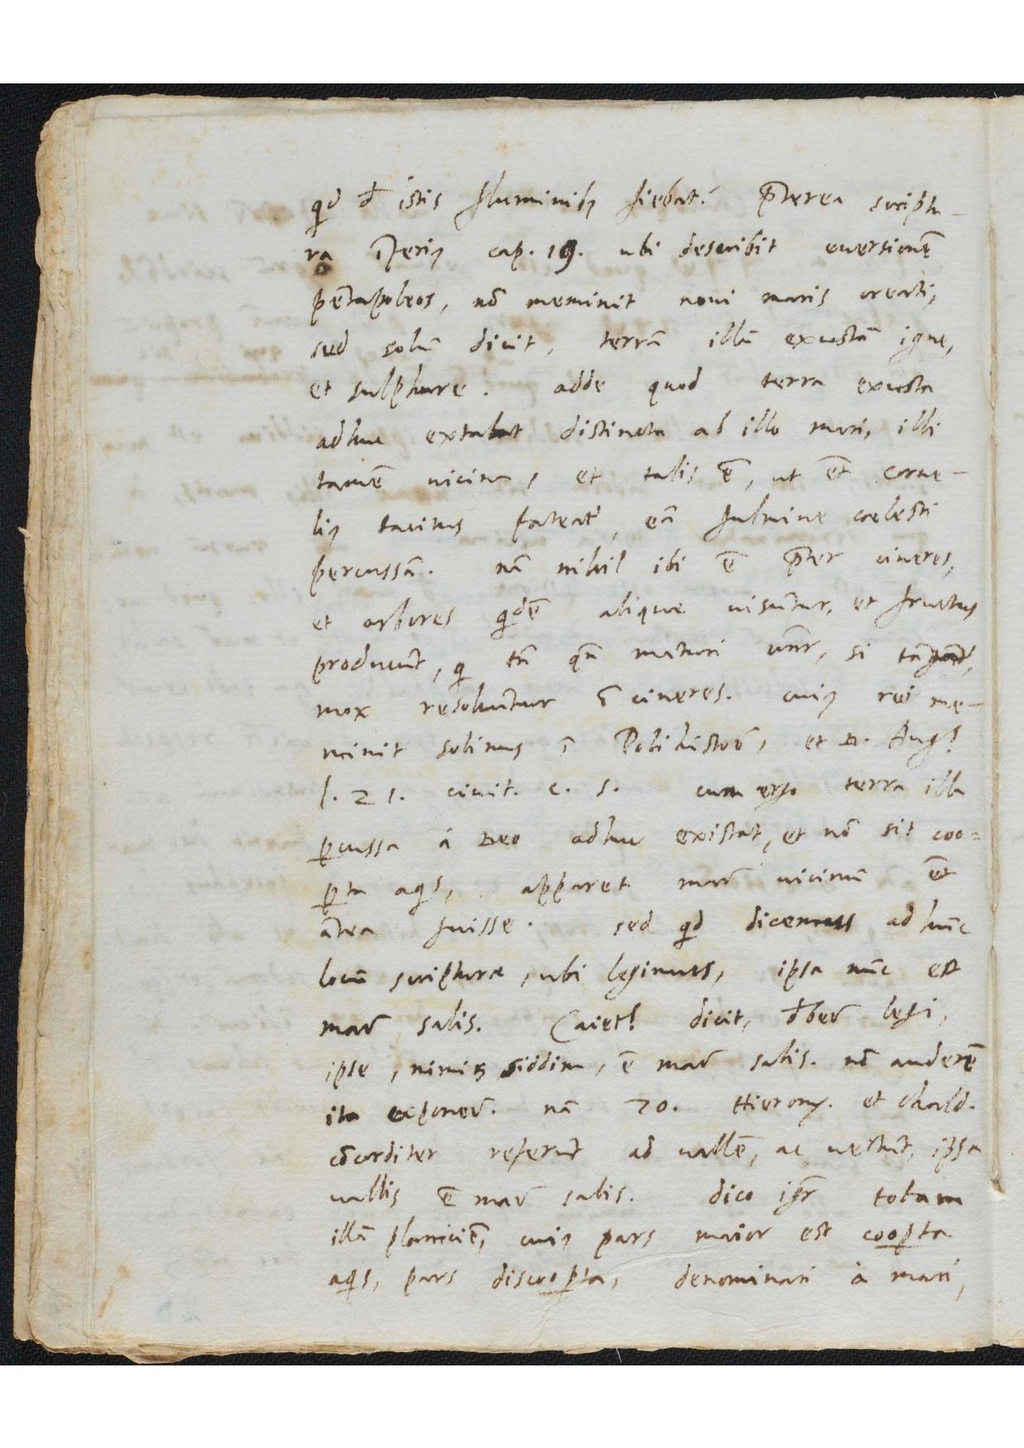 qd đ istis fluminibꝫ fiebat? p̄terea scriptu-
ra īferiꝫ cap. 19. ubi describit euersionē
pētapoleos, nō meminit noui maris creati,
sed solū dicit, terrā illā exustā igne,
et sulphure. adde quod terra exusta
adhuc extabat distincta ab illo mari, illi
tamē uicina, et talis ē, ut ēt corne-
liꝫ tacitus fateat', eā fulmine coelesti
percussā. nā nihil ibi ē p̄ter cineres,
et arbores qdē alique uisūtur, et fructus
producūt, q tn̄ qn̄ maturi ur̄, si tāgant',
mox resoluūtur ī cineres. cuiꝫ rei me-
minit solinus ī Polihistore, et D. Aug!
l. 21. ciuit. c. 5. cum ergo terra illa
ꝑcussa à Deo adhuc existat, et nō sit coo=
ꝑta aqs, apparet mare uicinū ēt
ātea fuisse. sed qd dicemus ad hūc
locū scripturæ, ubi legimus, ipsa nūc est
mare salis. Caiet! dicit, đbere legi,
ipse, nimiꝝ siddim, ē mare salis. nō auderē
ita exponere. nā 70. Hierony. et chald.
cōcorditer referūt ad uallē, ac uertūt, ipsa
uallis ē mare salis. dico igr̄ totam
illā planiciē, cuiꝫ pars maior est cooꝑta
aqs, pars discooꝑta, denominari à mari,